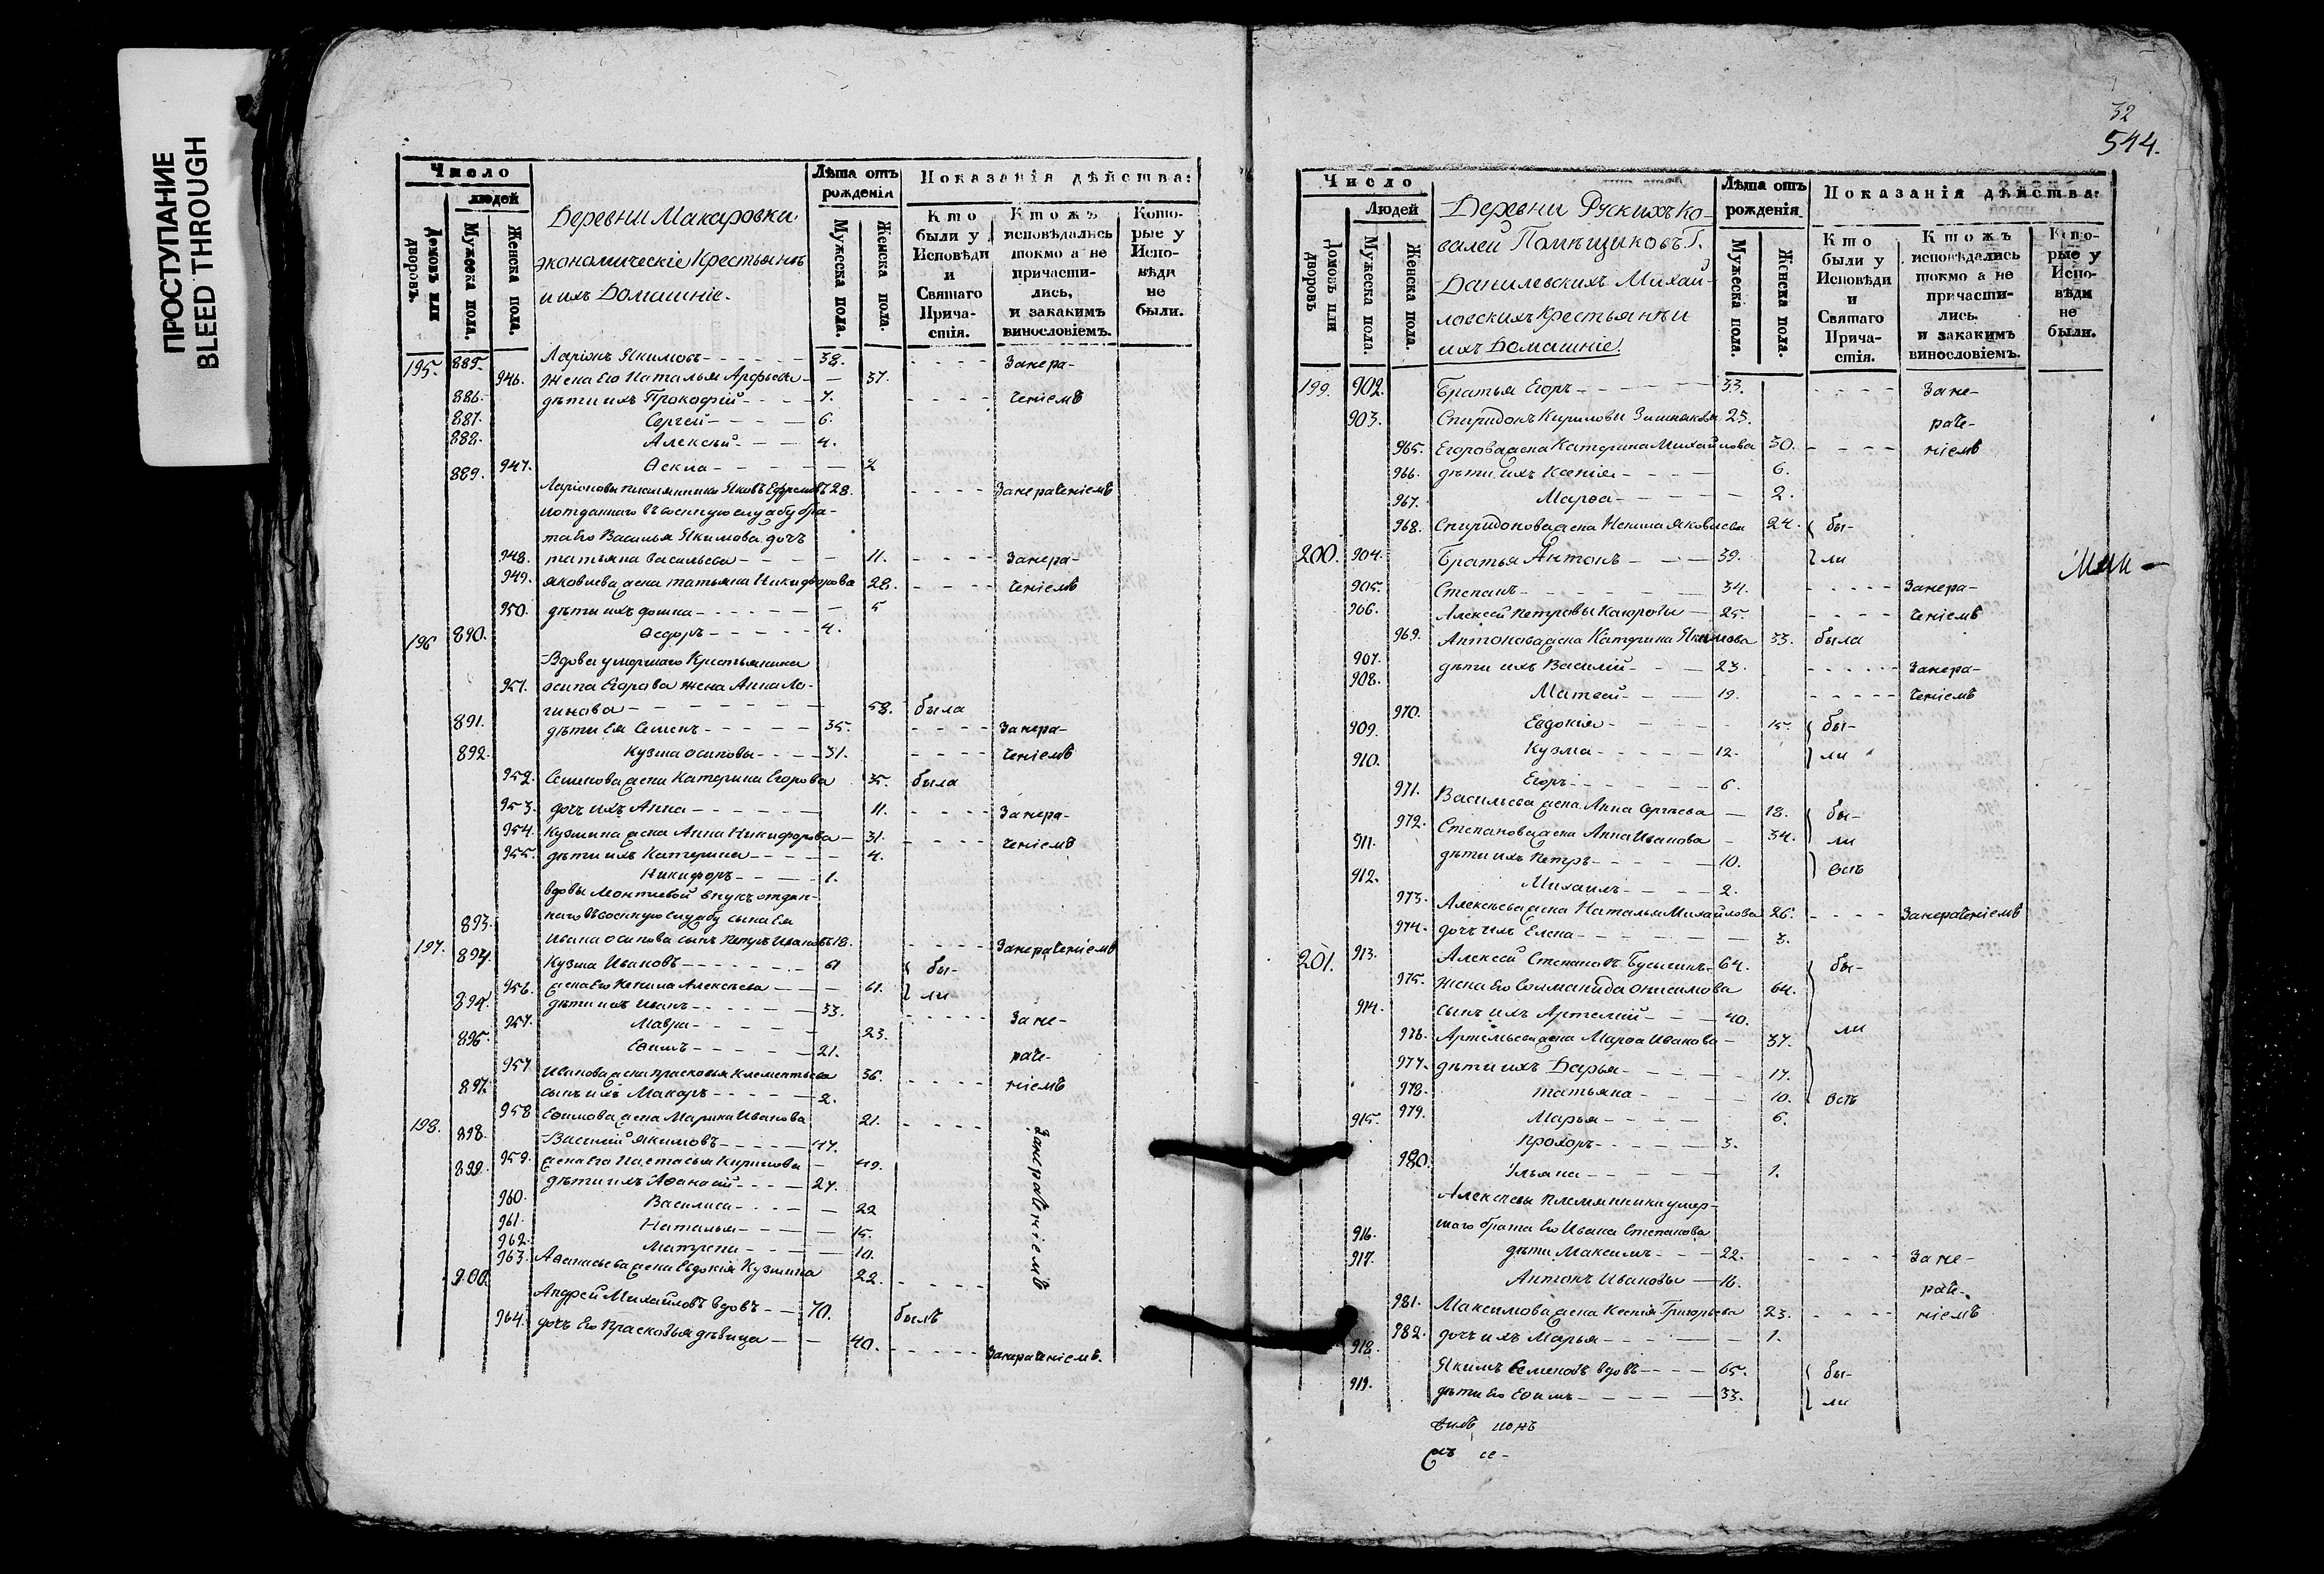 ПРОСТУПАНИЕ
BLEED THROUGH
Число
людей
Домовъ или дворовъ.
Мужеска пола.
Женска пола.
Деревни Макаровки
экономическіе Крестьянъ
и ихъ Домашніе.
Лѣта отъ рожденія
Мужеска пола.
Женска пола.
Показанія дѣйства:
Кто были у Исповѣди и Святаго Прича-стія.
Ктожъ исповѣдались токмо а не причасти-лись, и закакимъ винословіемъ.
Кото-рые у Испо-вѣди не были.
195. 885. Ларіонъ Якимовъ 38. Занера-
946. жена Его Наталья Арефьева 37.
886. дѣти ихъ Прокофій 7. ченіемъ
887. Сергей 6.
888. Алексѣй 4.
947. Ѳекла 2
889. Ларіоновы племянники Яковъ Ефремовъ 28. Занераченіемъ
и отданнаго въ военную службу бра-
та Его Василья Якимова дочь
948. татьяна васильева 11. Занера-
949. яковлева жена татьяна Никифорова 28. ченіемъ
950. дѣти ихъ домна 5
890. Ѳедоръ 4.
196 Вдова умершаго Крестьянина
951. осипа Егорова жена Анна Ло-
гинова 58. была
891. дѣти Ея Семенъ 35. Занера-
892. Кузма осиповы 31. ченіемъ
952. Семенова жена Катерина Егорова 35. была
953. дочь ихъ Анна 11. Занера-
954. Кузмина жена Анна Никифорова 31. ченіемъ
955. дѣти ихъ Катерина 4.
Никифоръ 1.
вдовы Леонтьевой внукъ отдан-
893. наго въ военную службу сына Ея
Ивана осипова сынъ Петръ Ивановъ 18. Занераченіемъ
197. 894. Кузма Ивановъ 61 бы-
956. жена Его Ксенія Алексѣева 61. ли
894. дѣти ихъ Иванъ 33. Зане-
957. Мавра 23.
896. Ефимъ 21. раче-
957 Иванова жена прасковья Клементьева 36. ніемъ
897. сынъ ихъ Макаръ 2.
958 Ефимова жена Марина Иванова 21.
198. 898. Василий якимовъ 47. Занераченіемъ
959. жена Его Настасья Кирилова 49.
899. дѣти ихъ Афанасій 27.
960. Василиса 22
961. Наталья 15.
962. Матрена 10.
963. Афанасьева жена Евдокія Кузмина 22.
900. Андрей Михайловъ вдовъ 70. былъ
964. дочь Его Прасковья дѣвица 40. Занераченіемъ.
32
544.
Число
Людей
Домовъ или дворовъ
Мужеска пола.
Женска пола.
Деревни Рускихъ Ко-
валей Помѣщиковъ Г.
Данилевскихъ Михай-
ловскихъ Крестьянъ и
ихъ Домашніе.
Лѣта отъ рожденія
Мужеска пола.
Женска пола.
Показанія дѣйства:
Кто были у Исповѣди и Святаго Прича-стія.
Ктожъ исповѣдались токмо а не причасти-лись. и закакимъ винословіемъ.
Кото-рые у Испо-вѣди не были.
199. 902. Братья Егоръ 33. Зане-
903. Спиридонъ Кириловы 25. раче-
965. Егорова жена Катерина Михайлова 30. ніемъ
966. дѣти ихъ Ксенія 6.
967. Марѳа 2.
968. Спиридонова жена Ксенія Яковлева 24. бы-
200. 904. Братья Антонъ 39. ли
905. Степанъ 34. Занера-
906. Алексей Петровы 25. ченіемъ
969. Антонова жена Катерина Якимова 33. была
907. дѣти ихъ Василий 23. Занера-
908. Матвей 19. ченіемъ
970. Евдокія 15. бы-
909. Кузма 12. ли
910. Егоръ 6.
971. Васильева жена Анна Сергѣева 18. бы-
972. Степанова жена Анна Иванова 34. ли
911. дѣти ихъ Петръ 10. всѣ
912. Михаилъ 2.
973. Алексѣева жена Наталья Михайлова 26. Занераченіемъ
974. дочь ихъ Елена 3.
201. 913. Алексей Степановъ 64. бы-
975. жена Его Соломанида Онисимова 64.
914. сынъ ихъ Артемий 40. ли
976. Артемьева жена Марѳа Иванова 37.
977. дѣти ихъ Дарья 17.
978. татьяна 10. всѣ
979. Марья 6.
915. Прохоръ 3.
980. Ульяна 1.
Алексѣевы племянники умер-
шаго брата Его Ивана Степанова
916. дѣти Максимъ 22. Зане-
917. Антонъ Ивановы 16. раче-
981. Максимова жена Ксенія Григорьева 23. ніемъ
982. дочь ихъ Марья 1.
918. Якимъ Семеновъ вдовъ 65. бы-
919. дѣти Его Ефимъ 33. ли